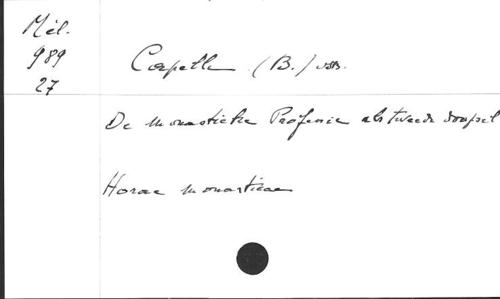 Mél.
989
27
Capelle (B.) osb.
De monastieke Professie als tweede doopsel
Horae monasticae